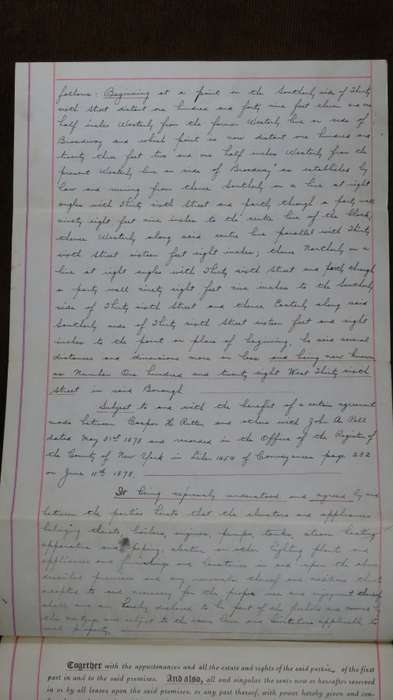 follows: Beginning at a point in the Southerly side of Thirty
sixth Street distant one hundred and forty nine feet eleven and one
half inches Westerly from the former Westerly line or side of
Broadway and which point is now distant one hundred and
twenty three feet two and one half inches Westerly from the
present Westerly line or side of Broadway as established by
law and running from thence Southerly on a line at right
angles with Thirty sixth Street and partly through a party wall
ninety eight feet nine inches to the centre line of the block;
thence Westerly along said centre line parallel with Thirty
sixth Street sixteen feet eight inches; thence Northerly on a
line at right angles with Thirty sixth Street and partly through
a party wall ninety eight feet nine inches to the Southerly
side of Thirty sixth Street and thence Easterly along said
Southerly side of Thirty sixth Street sixteen feet and eight
inches to the point or place of beginning, be said several
distances and dimensions more or less and being now known
as Number One hundred and twenty eight West Thirty sixth
Street in said Borough
Subject to and with the benefit of a certain agreement
made between Casper H. and others with John A.
dated May 31st 1878 and recorded in the Office of the Register of
the County of New York in Liber 1454 of Conveyances page 232
on June 11th 1878.
It being expressly understood and agreed by and
between the parties hereto that the elevators and appliances
belonging thereto, boilers, engines, pumps, tanks, steam heating
apparatus and piping, electric or other lighting plants and
appliances and in and upon the above
described premises and any renewals thereof and additions thereto
necessary for the proper use and enjoyment thereof
are hereby declared to be part of the
subject to the same
Together with the appurtenances and all the estate and rights of the said part of the first
part in and to the said premises. And also, all and singular the rents now or hereafter reserved
in or by all leases upon the said premises, or any part thereof, with power hereby given and con-